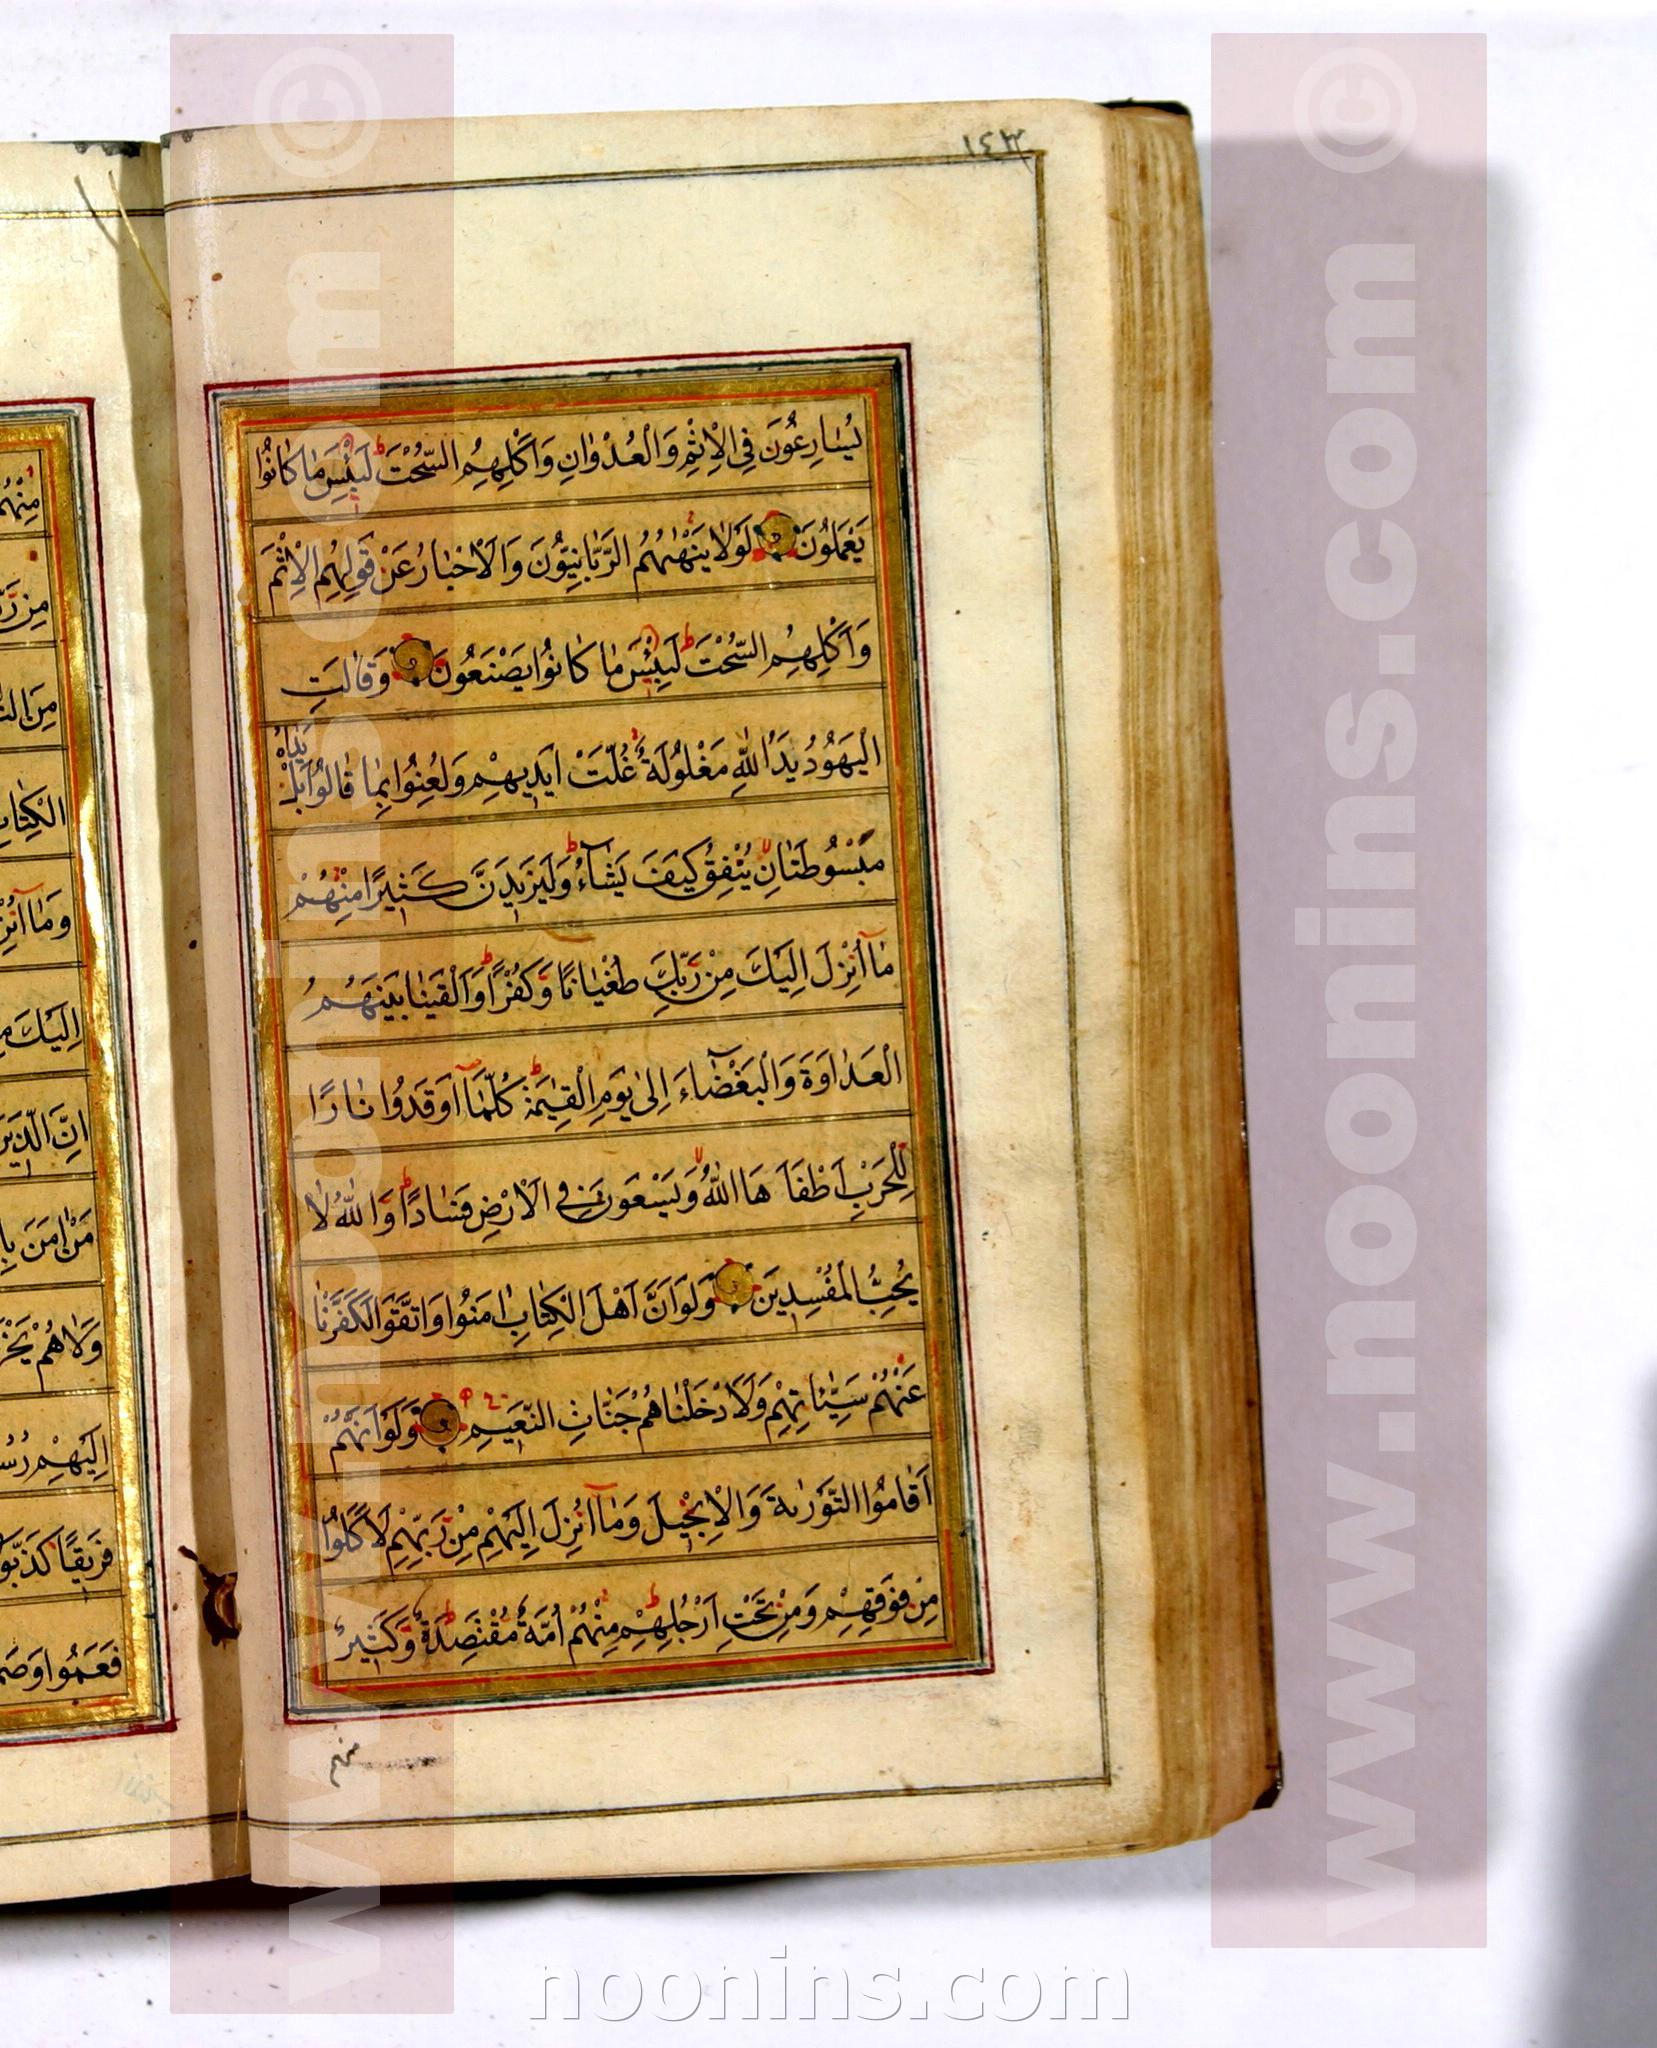 ١٤٣
يُسَارِعُونَ فِي الْاِثْمِ وَالْعُدْوَانِ وَاَكْلِهِمُ السُّحْتَ لَبِئْسَ مَا كَانُوا
يَعْمَلُونَ لَوْلَا يَنْهٰيهُمُ الرَّبَّانِيُّونَ وَالْاَحْبَارُ عَنْ قَوْلِهِمُ الْاِثْمَ
وَاَكْلِهِمُ السُّحْتَ لَبِئْسَ مَا كَانُوا يَصْنَعُونَ وَقَالَتِ
الْيَهُودُ يَدُ اللّٰهِ مَغْلُولَةٌ غُلَّتْ اَيْدِيهِمْ وَلُعِنُوا بِمَا قَالُوا بَلْ يَدَاهُ
مَبْسُوطَتَانِ يُنْفِقُ كَيْفَ يَشَآءُ وَلَيَزِيدَنَّ كَثِيرًا مِنْهُمْ
مَآ اُنْزِلَ اِلَيْكَ مِنْ رَبِّكَ طُغْيَانًا وَكُفْرًا وَاَلْقَيْنَا بَيْنَهُمُ
الْعَدَاوَةَ وَالْبَغْضَآءَ اِلٰى يَوْمِ الْقِيٰمَةِ كُلَّمَآ اَوْقَدُوا نَارًا
لِلْحَرْبِ اَطْفَاَهَا اللّٰهُ وَيَسْعَوْنَ فِي الْاَرْضِ فَسَادًا وَاللّٰهُ لَا
يُحِبُّ الْمُفْسِدِينَ وَلَوْ اَنَّ اَهْلَ الْكِتَابِ اٰمَنُوا وَاتَّقَوْا لَكَفَّرْنَا
عَنْهُمْ سَيِّئَاتِهِمْ وَلَاَدْخَلْنَاهُمْ جَنَّاتِ النَّعِيمِ وَلَوْ اَنَّهُمْ
اَقَامُوا التَّوْرٰيةَ وَالْاِنْجِيلَ وَمَآ اُنْزِلَ اِلَيْهِمْ مِنْ رَبِّهِمْ لَاَكَلُوا
مِنْ فَوْقِهِمْ وَمِنْ تَحْتِ اَرْجُلِهِمْ مِنْهُمْ اُمَّةٌ مُقْتَصِدَةٌ وَكَثِيرٌ
منهم
مِنْهُمْ
مِنْ
مِنَ
الْكِتَابِ
وَمَآ
اِلَيْكَ
اِنَّ الَّذِينَ
مَنْ اٰمَنَ
وَلَا هُمْ
اِلَيْهِمْ
فَرِيقًا كَذَّبُوا
فَعَمُوا
www.noonins.com ©
www.noonins.com ©
noonins.com